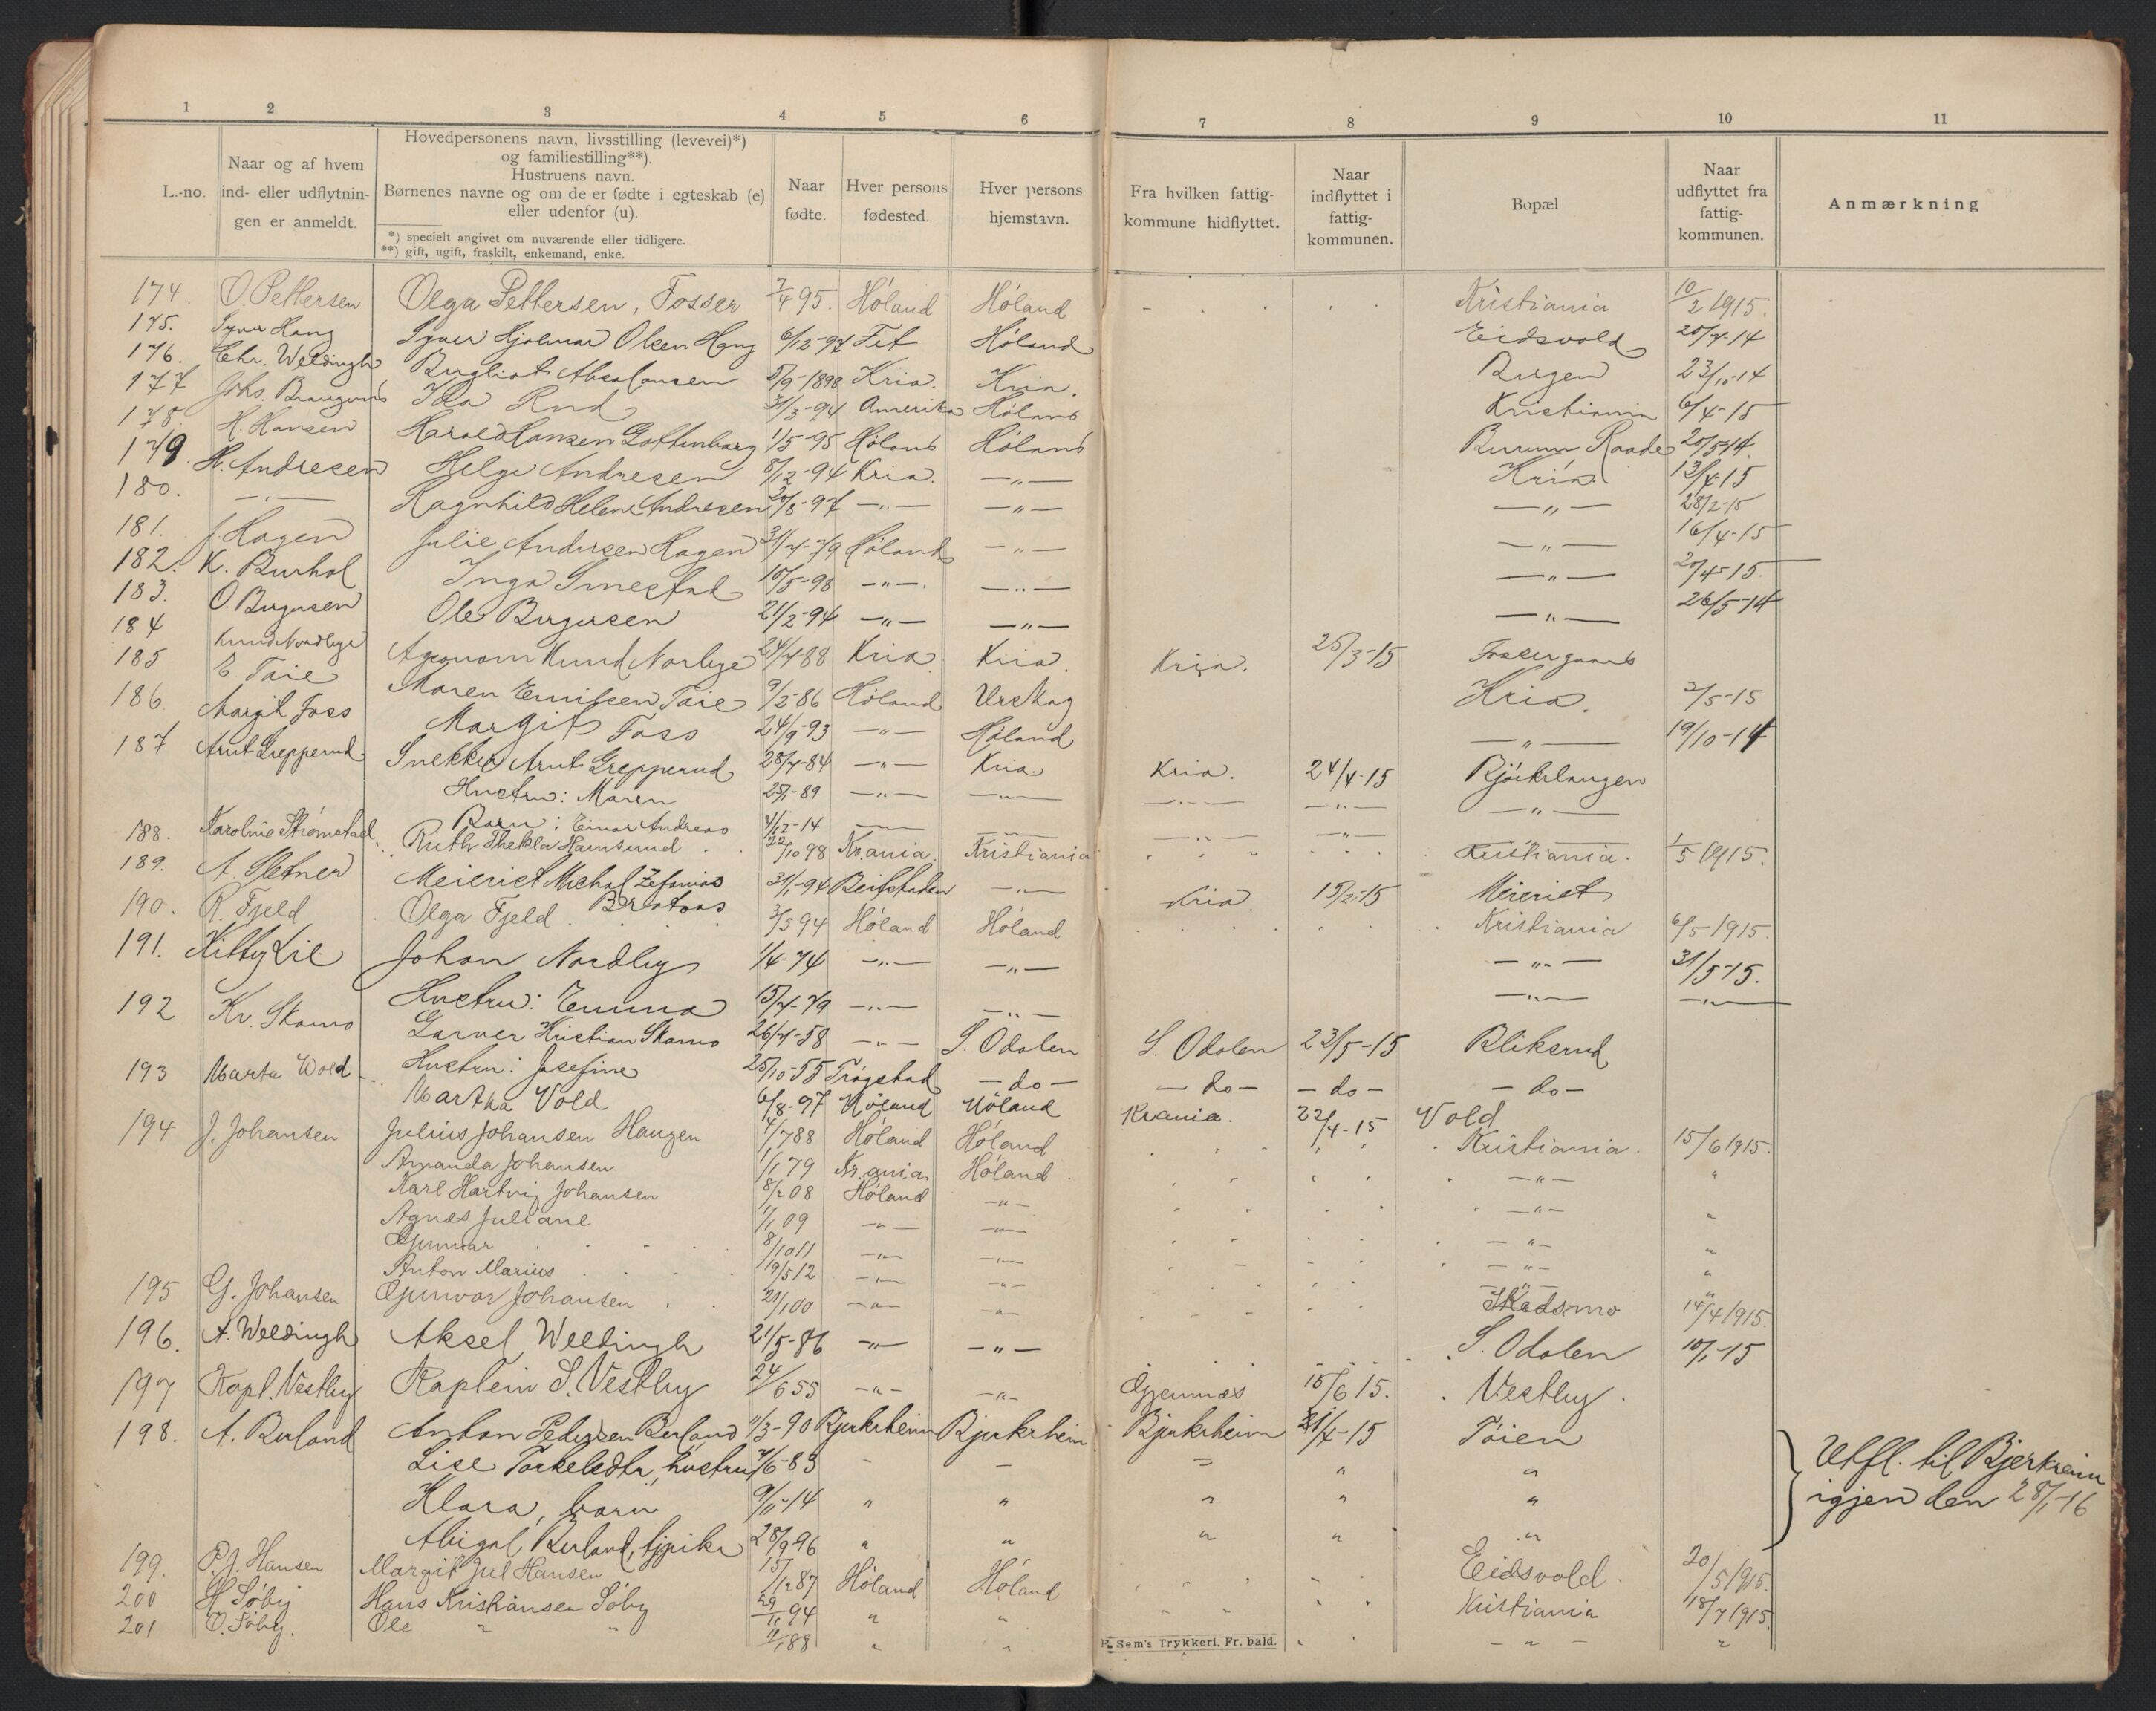 1 2 3 4 5 6 7 8 9 10 11
L.-no.
Naar og af hvem
ind- eller udflytnin-
gen er anmeldt.
Hovedpersonens navn, livsstilling (levevei)*)
og familiestilling**).
Hustruens navn.
Børnenes navne og om de er fødte i egteskab (e)
eller udenfor (u).
*) specielt angivet om nuværende eller tidligere.
**) gift, ugift, fraskilt, enkemand, enke.
Naar
fødte.
Hver persons
fødested.
Hver persons
hjemstavn.
Fra hvilken fattig-
kommune hidflyttet.
Naar
indflyttet i
fattig-
kommunen.
Bopæl
Naar
udflyttet fra
fattig-
kommunen.
Anmærkning
174. O. Pettersen Olga Pettersen, Fosser 7/4 95. Høland Høland Kristiania 10/2 1915.
175. Syver Haug Syver Hjalmar Olsen Haug 6/12-97 Fet Høland Eidsvold 20/4-14
176. Chr. Weldingh Birgliot Absalonsen 5/9-1898 Kria. Kria. Bergen 23/10-14
177 Johs. Ida Rud 31/3-94 Amerika Høland Kristiania 6/4-15
178. H. Hansen Harald Hansen Gottenborg 1/5-95 Høland Høland Raade 20/5-14.
179 H. Andresen Helge Andresen 8/12-94 Kria. —"— Kria. 13/4-15
180. —"— Ragnhild Helene Andresen 20/8-97 —"— —"— —"— 28/2-15
181. J. Hagen Julie Andersen Hagen 31/7-79 Høland —"— —"— 16/4-15
182. K. Burhol Inga Smestad 10/5-98 —"— —"— —"— 20/4-15.
183. O. Birgersen Ole Birgersen 21/2-94 —"— —"— —"— 26/5-14
184 Knud Nordbye Knud Norbye 24/4 88 Kria Kria. Kria. 25/3-15 Fossergaard
185 E. Taie Maren Taie 9/2-86 Høland Urskog Kria. 2/5-15
186 Margit Foss Margit Foss 24/9-93 —"— Høland —"— 19/10-14
187 Arnt Grepperud Snekker Arnt Grepperud 28/4-84 —"— Kria. Kria. 24/4-15 Bjørkelangen
Hustru: Maren 25/1-89 —"— —"— —"— —"— —"—
Barn: Einar Andreas 4/12-14 —"— —"— —"— —"—
188. Karoline Strømstad Ruth Thekla Hamsund 22/10 98 Kr.ania Kristiania Kristiania. 1/5 1915.
189. A. Sletner Meierist Michal Zefanias Brataas 31/1-94 Beitstaden —"— Kria. 15/2-15 Meieriet
190. R. Fjeld Olga Fjeld 3/5 94 Høland Høland Kristiania 6/5-1915.
191. Kitty Lie Johan Nordby 1/4-74 —"— —"— —"— 31/5-15.
Hustru: Emma 15/4-79 —"— —"— —"— —"—
192 Kr. Skamo Garver Kristian Skamo 26/4-58 —"— S. Odalen S. Odalen 23/5-15 Bliksrud
Hustru: Josefine 25/10-55 Trøgstad —do— —do— —do— —do—
193 Marta Wold Martha Vold 6/8-97 Høland Høland Krania. 22/4-15 Vold
194 J. Johansen Julius Johansen Haugen 4/7 88 Høland Høland Kristiania. 15/6 1915.
Amanda Johansen 1/1 79 Kr.ania. Høland —"— "
Karl Hartvig Johansen 8/2 08 Høland —"— —"— "
Agnes Juliane 1/1 09 —"— —"— —"— "
Gunnar 8/10 11 —"— —"— —"— "
Anton Marius 19/5 12 —"— —"— —"— "
195 G. Johansen Gunvor Johansen 21/1 00 —"— —"— Skedsmo 14/4 1915.
196. A. Weldingh Aksel Weldingh 21/5-86 —"— —"— S. Odalen 10/1-15
197 Kapt. Vestby Kaptein S. Vestby 24/6 55 —"— —"— 15/6 15. Vestby.
198. A. Berland Anton Pedersen Berland 11/3-90 Bjerkrheim Bjerkrheim Bjerkrheim 21/4-15 Tøien
Lise Torkelsdtr, hustru 7/6-83 - - " " "
Klara, barn 9/11-14 " " " " "
Abigal Berland, tjpike 28/9 96 " " " " "
Utfl. til Bjerkreim
igjen den 28/1-16
199. P. J. Hansen Margit Jul Hansen 15/12 87 Høland Høland Eidsvold. 20/5 1915.
200 H Søby Hans Kristiansen Søby 29/11 94 " " Kristiania 18/7 1915.
201 O. Søby. Ole " " 11/1 88 " " —"— "
E. Sem's Trykkeri, Fr. hald.